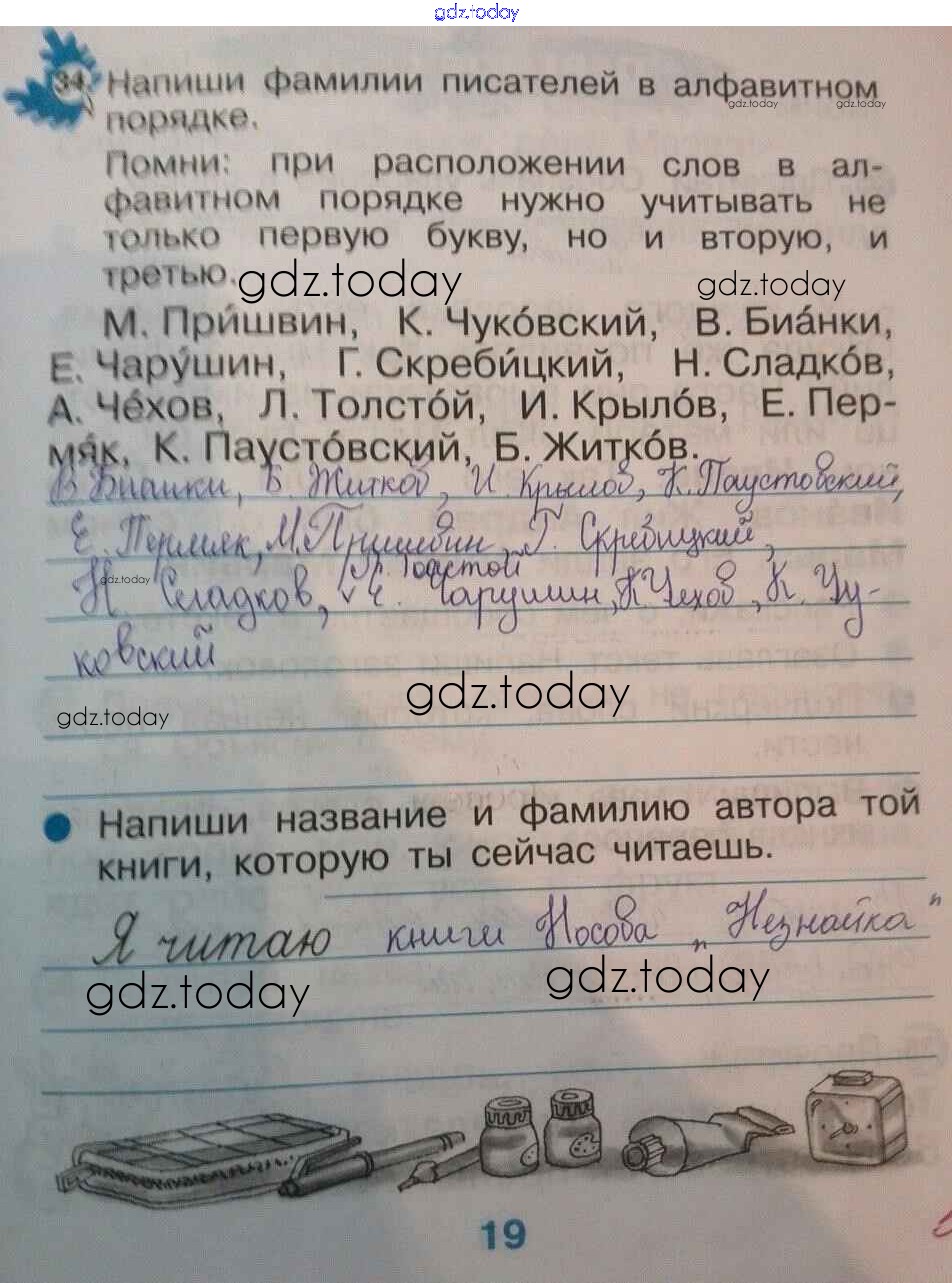 gdz.today
34 Напиши фамилии писателей в алфавитном
gdz.today gdz.today
порядке.
Помни: при расположении слов в ал-
фавитном порядке нужно учитывать не
только первую букву, но и вторую, и
третью.
gdz.today gdz.today
М. При́швин, К. Чуко́вский, В. Биа́нки,
Е. Чару́шин, Г. Скреби́цкий, Н. Сладко́в,
А. Че́хов, Л. Толсто́й, И. Крыло́в, Е. Пер-
мя́к, К. Паусто́вский, Б. Житко́в.
В. Бианки, Б. Житков, И. Крылов, К. Паустовский,
Е. Пермяк, М. Пришвин, Г. Скребицкий,
Л. Толстой
gdz.today
Н. Сладков, √ Е. Чарушин, К Чехов, К. Чу-
ковский
gdz.today
gdz.today
Напиши название и фамилию автора той
книги, которую ты сейчас читаешь.
Я читаю книги Носова „Незнайка"
gdz.today gdz.today
19